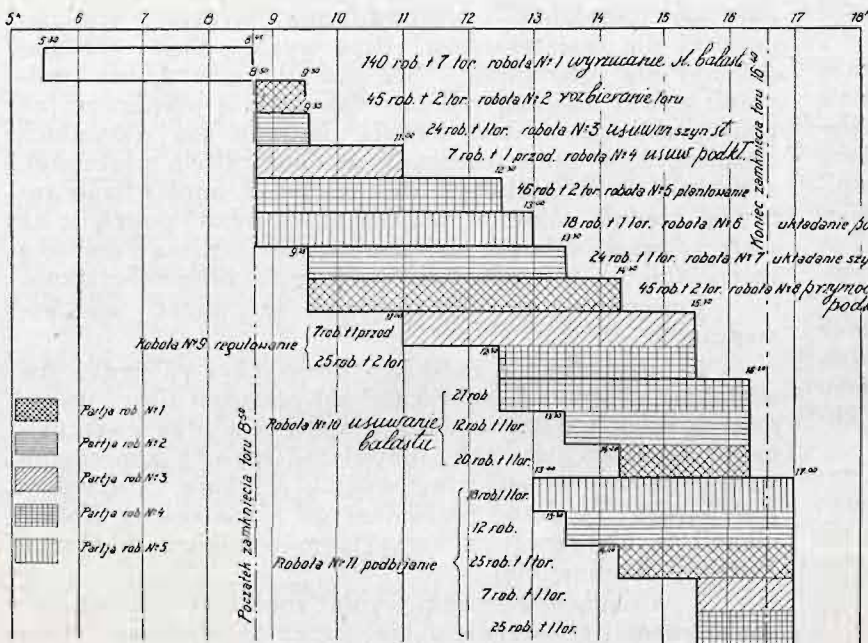 5ʰ 6 7 8 9 10 11 12 13 14 15 16 17 18ʰ
140 rob + 7 tor. robota №1 wyrzucanie st. balast
45 rob. + 2 tor. robota №2 rozbieranie toru
24 rob. + 1 tor. robota №3 usuwan szyn st
11⁰⁰
7 rob. + 1 przod. robota №4 usuw podkł.
46 rob + 2 tor. robota №5 plantowanie
13⁰⁰
18 rob + 1 tor. robota №6 układanie po
24 rob. + 1 tor. robota №7 układanie szy
45 rob + 2 tor. robota №8 przymoc
podk
11⁰⁰
Robota №9 regulowanie
7 rob + 1 przod
25 rob. + 2 tor.
Robota №10 usuwanie
balastu
21 rob
12 rob + 1 tor.
20 rob. + 1 tor.
13⁰⁰
17⁰⁰
Robota №11 podbijanie
18 rob. 1 tor.
12 rob.
25 rob. + 1 tor.
7 rob + 1 tor.
25 rob. + 1 tor.
Partja rob №1
Partja rob №2
Partja rob №3
Partja rob №4
Partja rob №5
Początek zamknięcia toru 8⁵⁰
Koniec zamknięcia toru 16⁴⁰